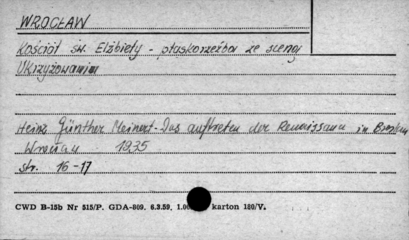 WROCŁAW
Kościół św. Elżbiety - płaskorzeźba ze sceną
Ukrzyżowania
Heinz Günther Meinert - Das auftreten der Renaissance in Breslau
Wrocław 1935
str. 16-17
CWD B-15b Nr 515/P. GDA-809. 6.3.59. 1.00 karton 180/V.